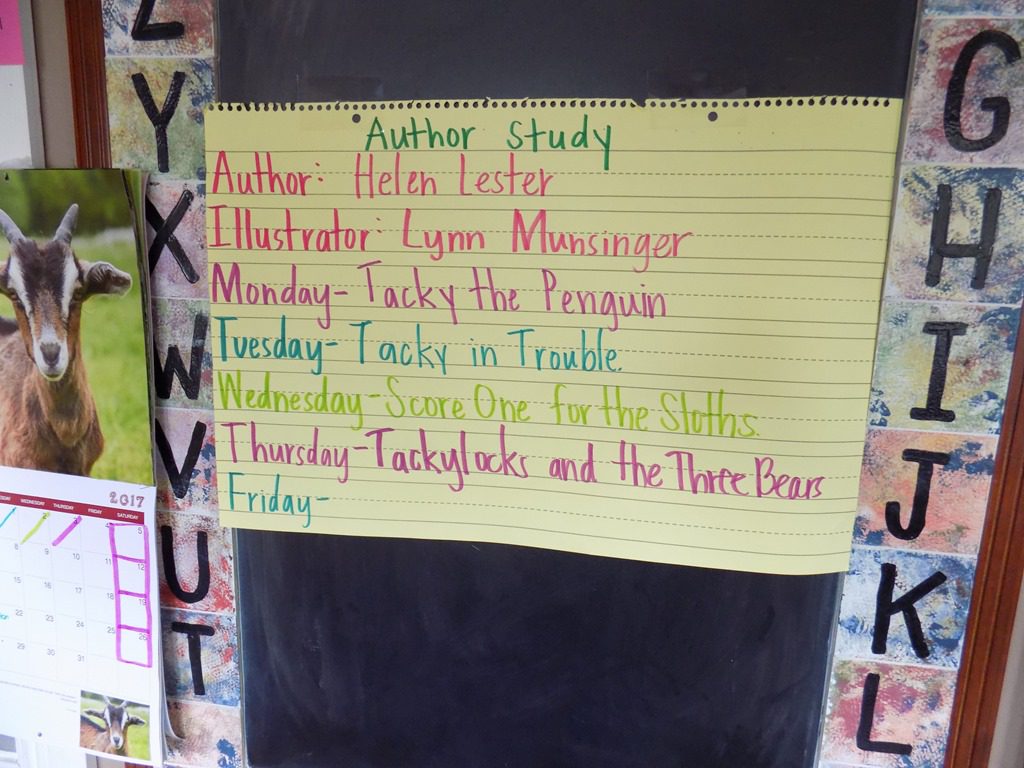 Author Study
Author: Helen Lester
Illustrator: Lynn Munsinger
Monday- Tacky the Penguin
Tuesday- Tacky in Trouble.
Wednesday-Score One for the Sloths.
Thursday-Tackylocks and the Three Bears
Friday-
Z
Y
X
W
V
U
T
G
H
I
J
K
L
2017
WEDNESDAY THURSDAY FRIDAY SATURDAY
4 5
8 9 10 11 12
15 16 17 18 19
22 23 24 25 26
29 30 31